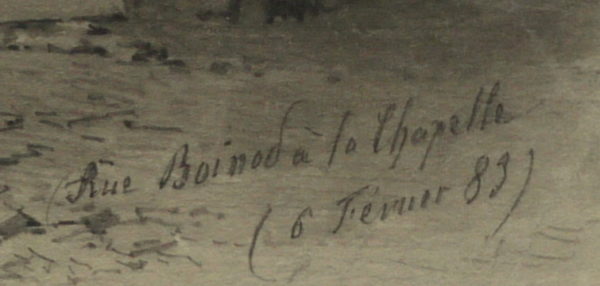 (Rue Boinod à la Chapelle
(6 Février 83)